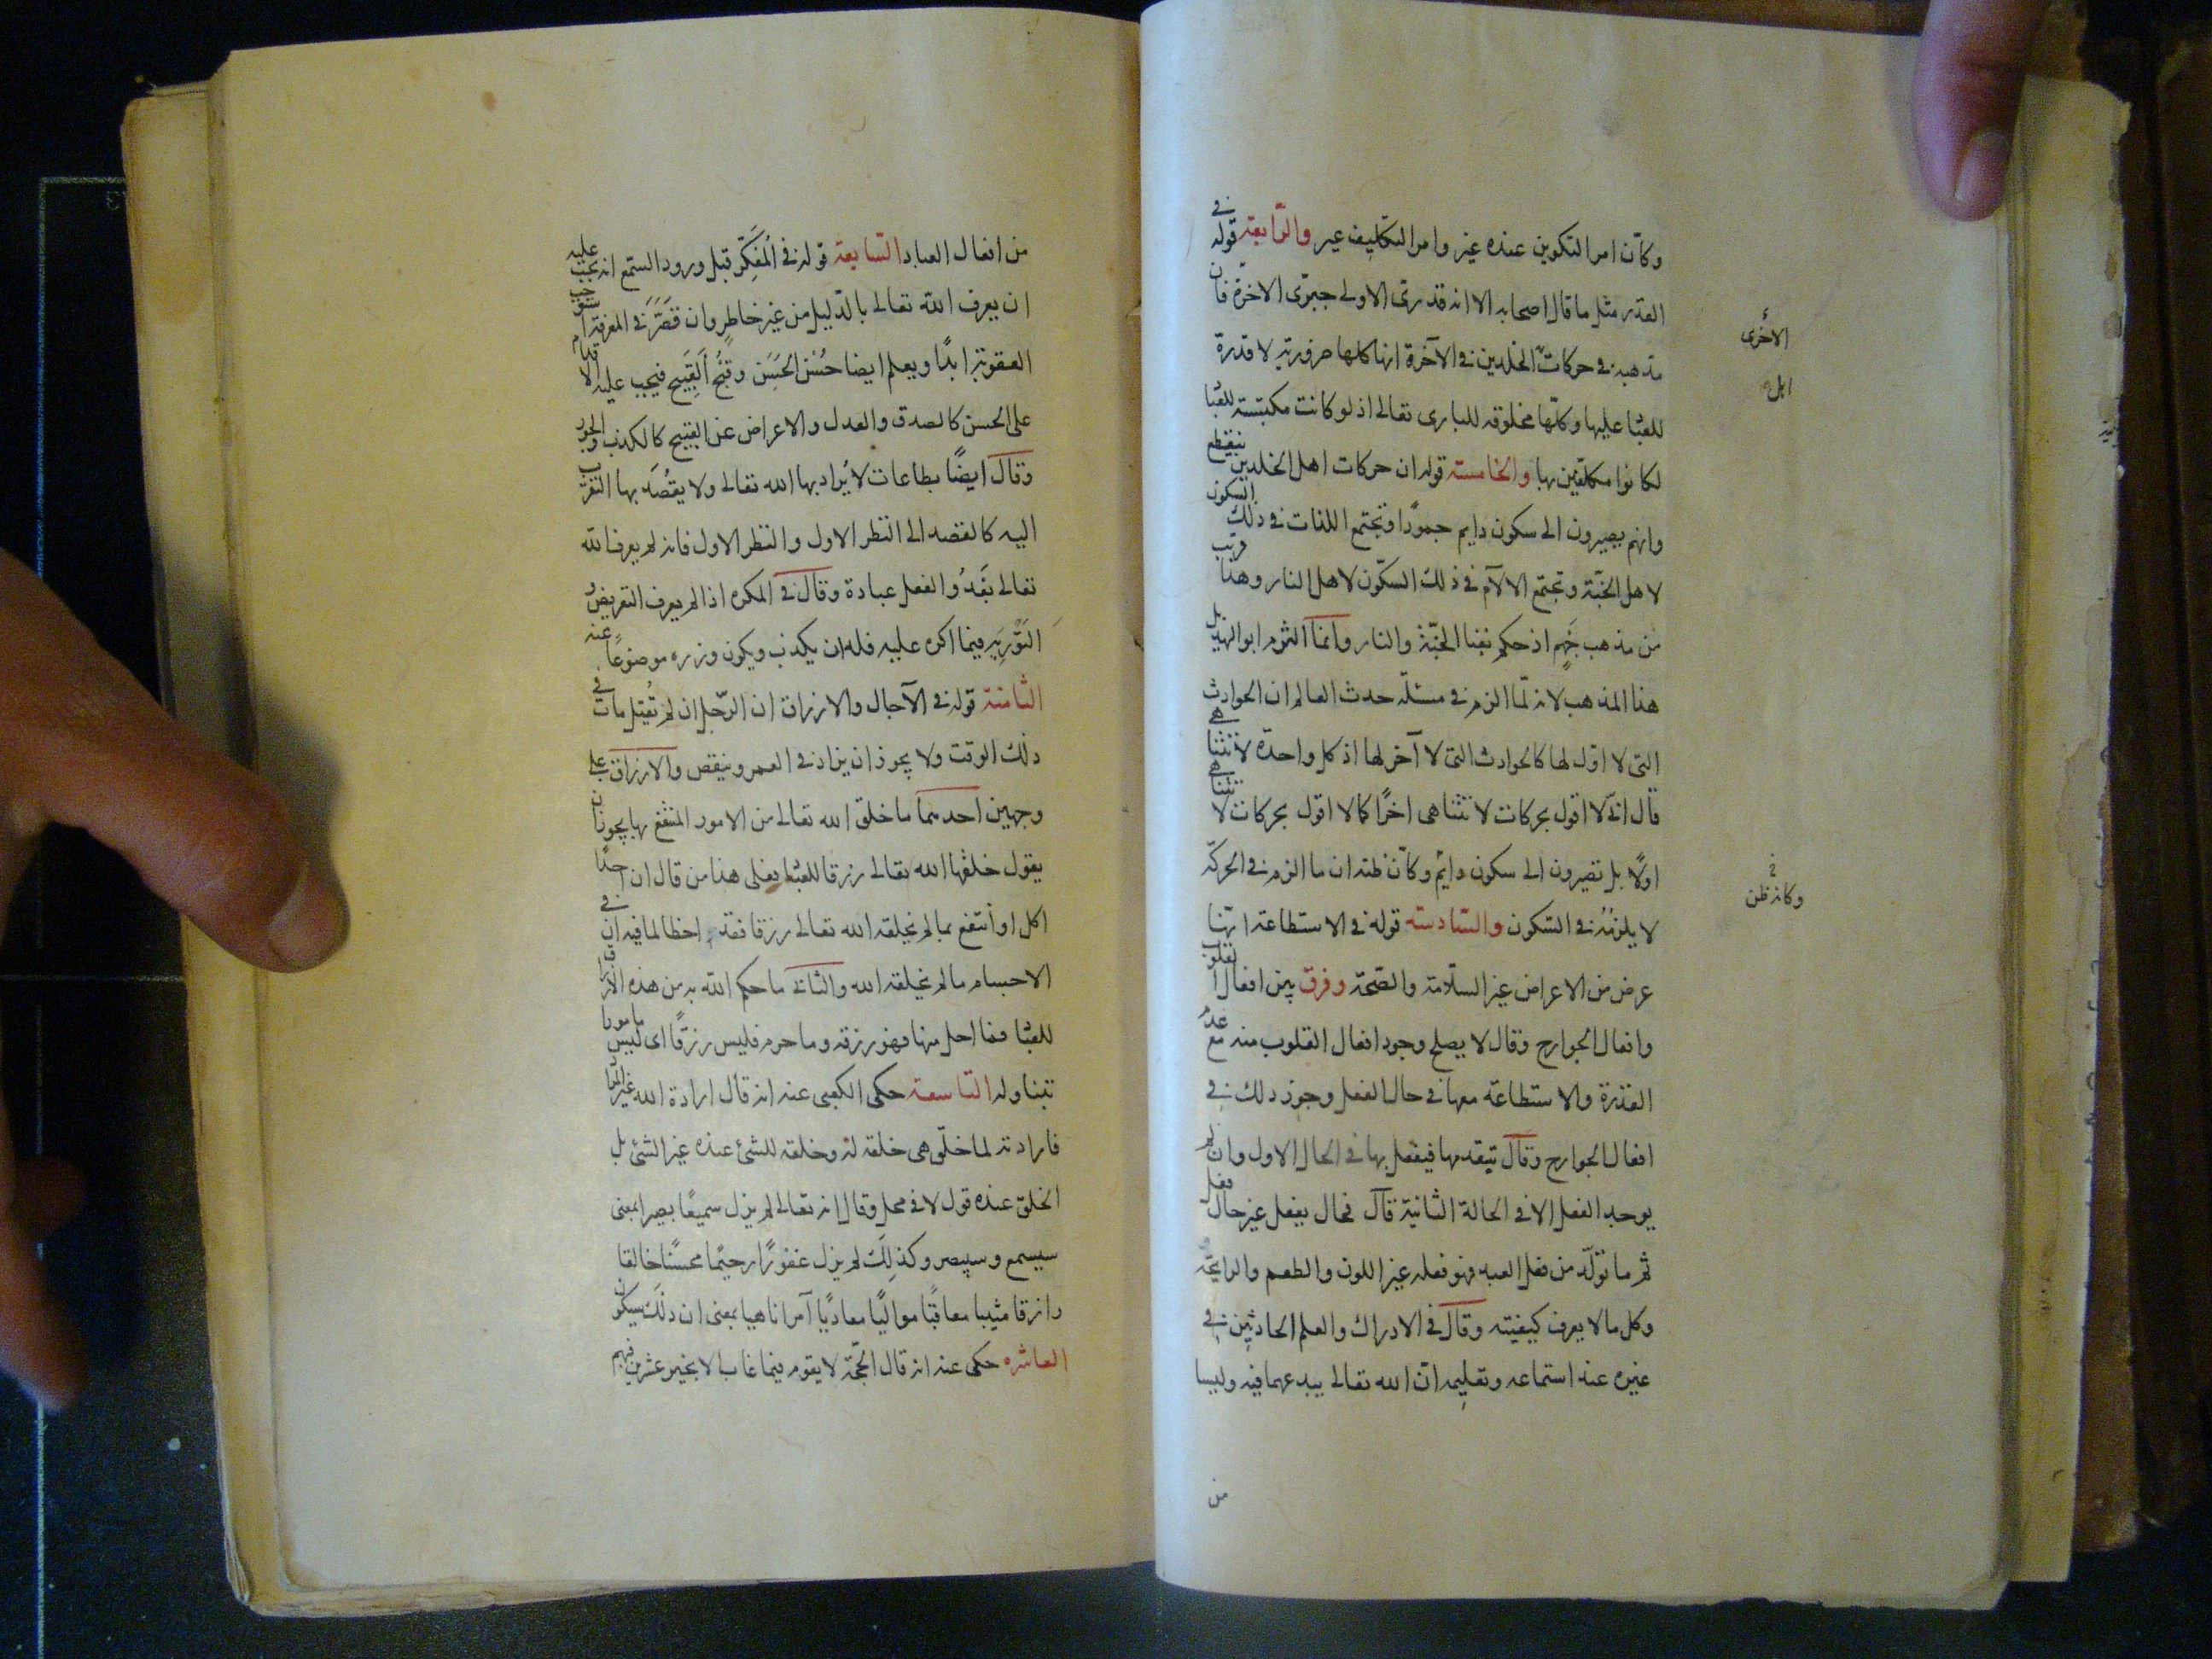 وكأن امر التكوين عنده غير وامر التكليف غير والرابعة قوله في
القدر مثل ما قال اصحابه الا انه قدرى الاولى جبرى الاخرة فان
الاخرى
مذهبه في حركات الخلدين في الآخرة انها كلها ضرورية لا قدرة
اهل
للعباد عليها وكلها مخلوقة للبارى تعالى اذ لو كانت مكتسبة للعباد
لكانوا مكلفين بها والخامسة قوله ان حركات اهل الخلدين ينقطع
وانهم يصيرون الى سكون دايم جمودا وتجتمع اللذات في ذلك السكون
لاهل الجنة وتجتمع الالام في ذلك السكون لاهل النار وهذا قريب
من مذهب جهم اذ حكم بفنا الجنة والنار وانما التزم ابو الهذيل
هذا المذهب لانه لما الزم في مسئلة حدث العالم ان الحوادث
التي لا اول لها كالحوادث التي لا آخر لها اذ كل واحدة لا تتناهى
قال انى لا اقول بحركات لا تتناهى اخرا كما لا اقول بحركات لا تتناهى
اولا بل تصيرون الى سكون دايم وكأن ظنه ان ما الزم في الحركة
وكانه ظن
لا يلزمه في السكون والسادسة قوله في الاستطاعة انها
عرض من الاعراض غير السلامة والصحة وفرق بين افعال القلوب
وافعال الجوارح وقال لا يصلح وجود افعال القلوب منه مع عدم
القدرة والاستطاعة معها في حال الفعل وجوز ذلك في
افعال الجوارح وقال بتقدمها فيفعل بها في الحال الاول وان لم
يوجد الفعل الا في الحالة الثانية قال فحال يفعل غير حال فعل
ثم ما تولد من فعل العبد فهو فعله غير اللون والطعم والرايحة
وكل ما لا يعرف كيفيته وقال في الادراك والعلم الحادثين في
غيره عند استماعه وتعليمه ان الله تعالى يبدعهما فيه وليسا
من
من افعال العباد السابعة قوله في المفكر قبل ورود السمع انه يجب عليه
ان يعرف الله تعالى بالدليل من غير خاطر وان قصر في المعرفة استوجب
العقوبة ابدا ويعلم ايضا حسن الحسن وقبح القبيح فيجب عليه الاقدام
على الحسن كالصدق والعدل والاعراض عن القبيح كالكذب والجور
وقال ايضا بطاعات لا يراد بها الله تعالى ولا يقصد بها التقرب
اليه كالقصد الى النظر الاول والنظر الاول فانه لم يعرف الله
تعالى بعد والفعل عبادة وقال في المكره اذا لم يعرف التعريض و
التورية فيما اكره عليه فله ان يكذب ويكون وزره موضوعا عنه
الثامنة قوله في الآجال والارزاق ان الرجل ان لم يقتل مات في
ذلك الوقت ولا يجوز ان يزاد في العمر وينقص والارزاق على
وجهين احديهما ما خلق الله تعالى من الامور المنتفع بها يجوز ان
يقول خلقها الله تعالى رزقا للعباد فعلى هذا من قال ان احدا
اكل او انتفع بما لم يخلقه الله تعالى رزقا فقد اخطا لما فيه ان في
الاجسام ما لم يخلقه الله والثانى ما حكم الله به من هذه الارزاق
للعباد فما احل منها فهو رزقه وما حرم فليس رزقا اى ليس مامورا
بتناوله التاسعة حكى الكعبى عنه انه قال ارادة الله غير المراد
فارادته لما خلق هي خلقه له وخلقه للشئ عنده غير الشئ بل
الخلق عنده قول لا في محل وقال انه تعالى لم يزل سميعا بصيرا بمعنى
سيسمع وسيبصر وكذلك لم يزل غفورا رحيما محسنا خالقا
رازقا مثيبا معاقبا مواليا معاديا آمرا ناهيا بمعنى ان ذلك سيكون
العاشره حكى عنه انه قال الحجة لا يقوم فيما غاب الا بخبر عشرين فيهم